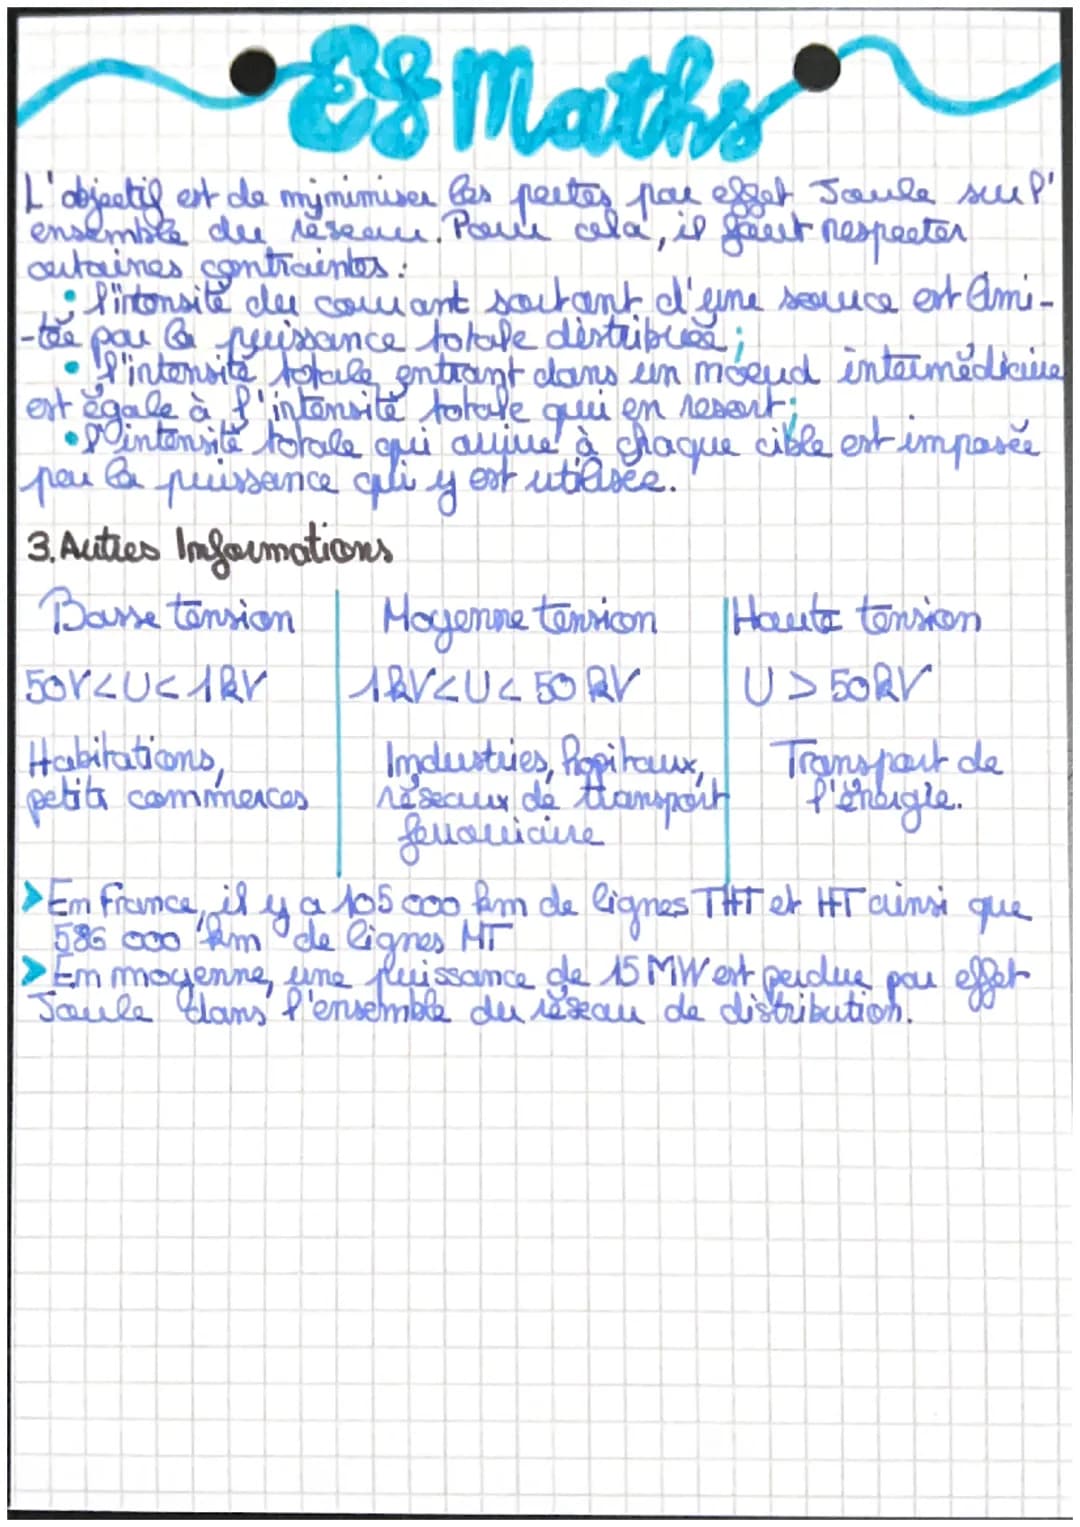 ES Maths
L'objectif est de minimiser les pertes par effet Joule sur l'
ensemble du réseau. Pour cela, il faut respecter
certaines contraintes :
• l'intensité du courant sortant d'une source est limi-
-tée par la puissance totale distribuée ;
• l'intensité totale entrant dans un noeud intermédiaire
est égale à l'intensité totale qui en ressort ;
• l'intensité totale qui arrive à chaque cible est imposée
par la puissance qui y est utilisée.
3. Autres Informations
Basse tension Moyenne tension Haute tension
50V<U<1kV 1kV<U<50kV U>50kV
Habitations, Industries, hopitaux, Transport de
petits commerces réseaux de transport l'énergie.
ferroviaire
> En France, il y a 105 000 km de lignes THT et HT ainsi que
586 000 km de lignes MT
> En moyenne, une puissance de 15 MW est perdue par effet
Joule dans l'ensemble du réseau de distribution.